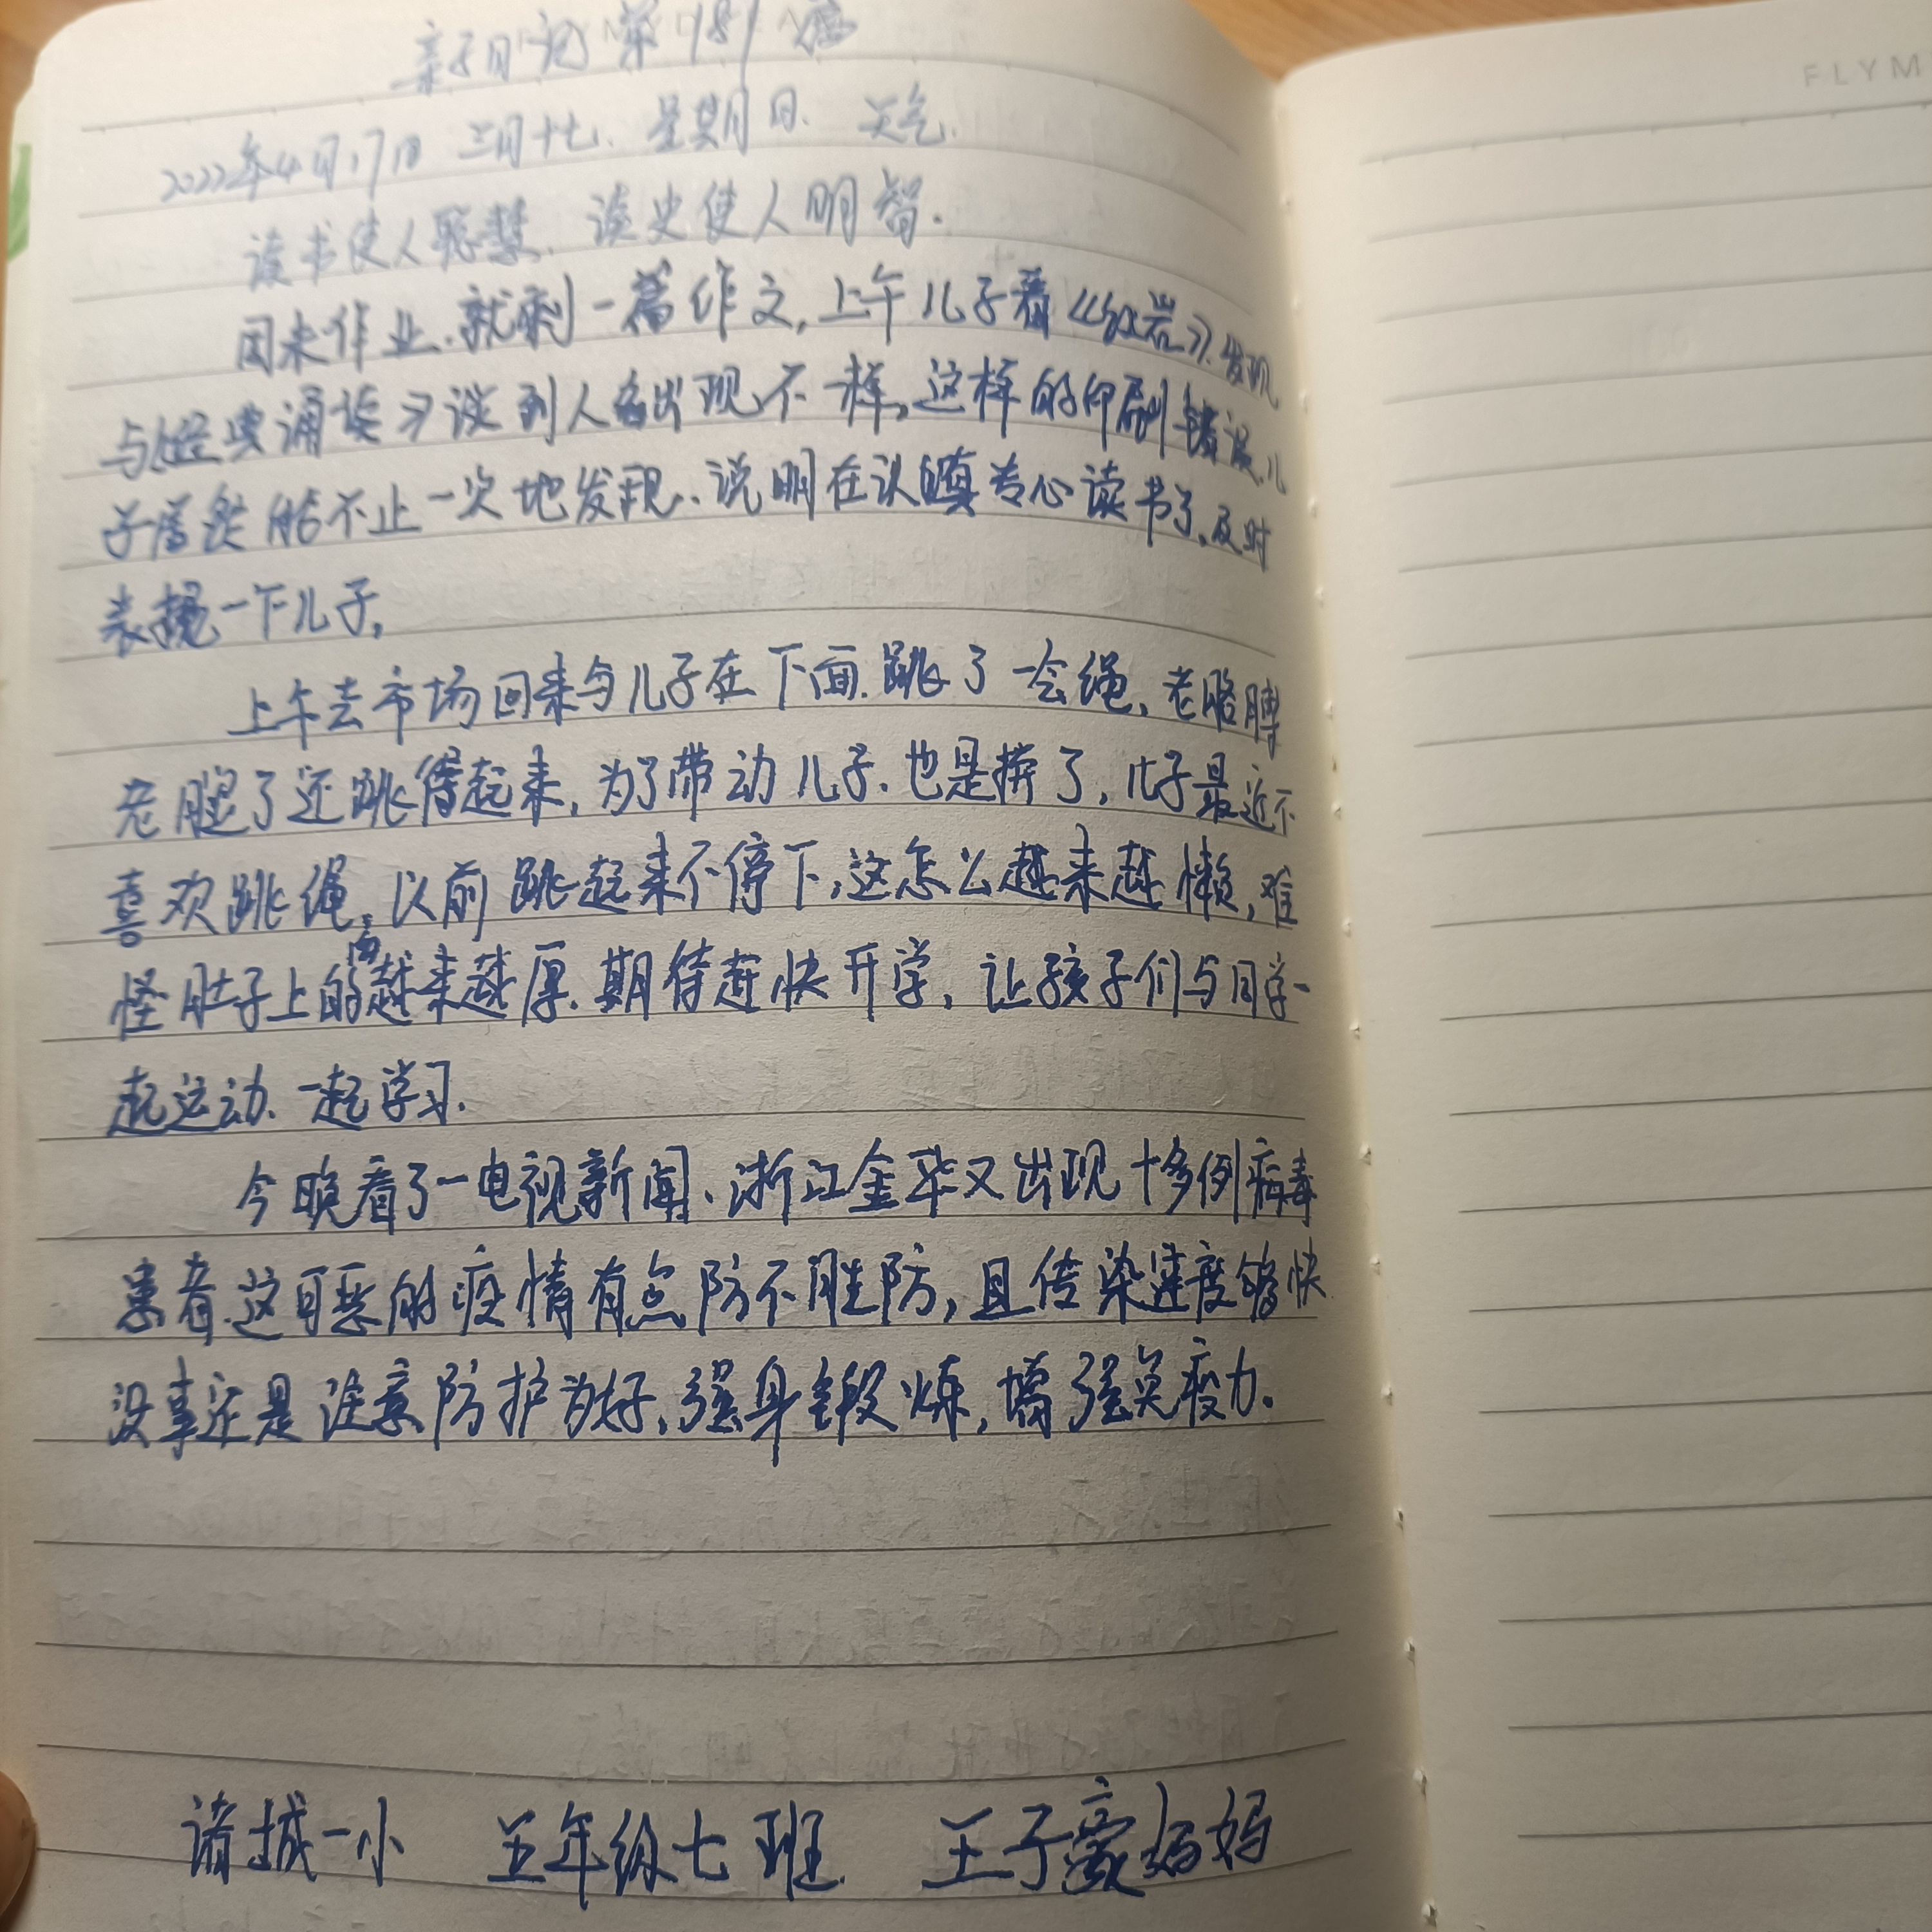 亲子日记第189篇
2022年4月17日 三月十七. 星期日. 天气.
读书使人聪慧. 读史使人明智.
周末作业.就剩一篇作文,上午儿子看《红岩》.发现
与《经典诵读》谈到人名出现不一样,这样的印刷错误儿
子居然能不止一次地发现..说明在认真专心读书了,及时
表扬一下儿子,
上午去市场回来与儿子在下面.跳了一会绳,老胳膊
老腿了还跳得起来,为了带动儿子.也是拼了,儿子最近不
喜欢跳绳,以前跳起来不停下,这怎么越来越懒,难
怪肚子上的肉越来越厚.期待赶快开学,让孩子们与同学一
起运动、一起学习.
今晚看了一电视新闻、浙江金华又出现十多例病毒
患者.这可恶的疫情有点防不胜防,且传染速度够快
没事还是注意防护为好,强身锻炼,增强免疫力。
诸城一小 五年级七班. 王子豪妈妈
FLYM